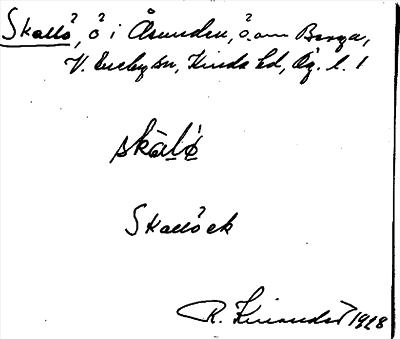 Skallö, ö i Åsunden, ö. om Borga,
V. Eneby sn, Kinda hd, Ög. l. 1
skàlö
Skallöck
R. 1928